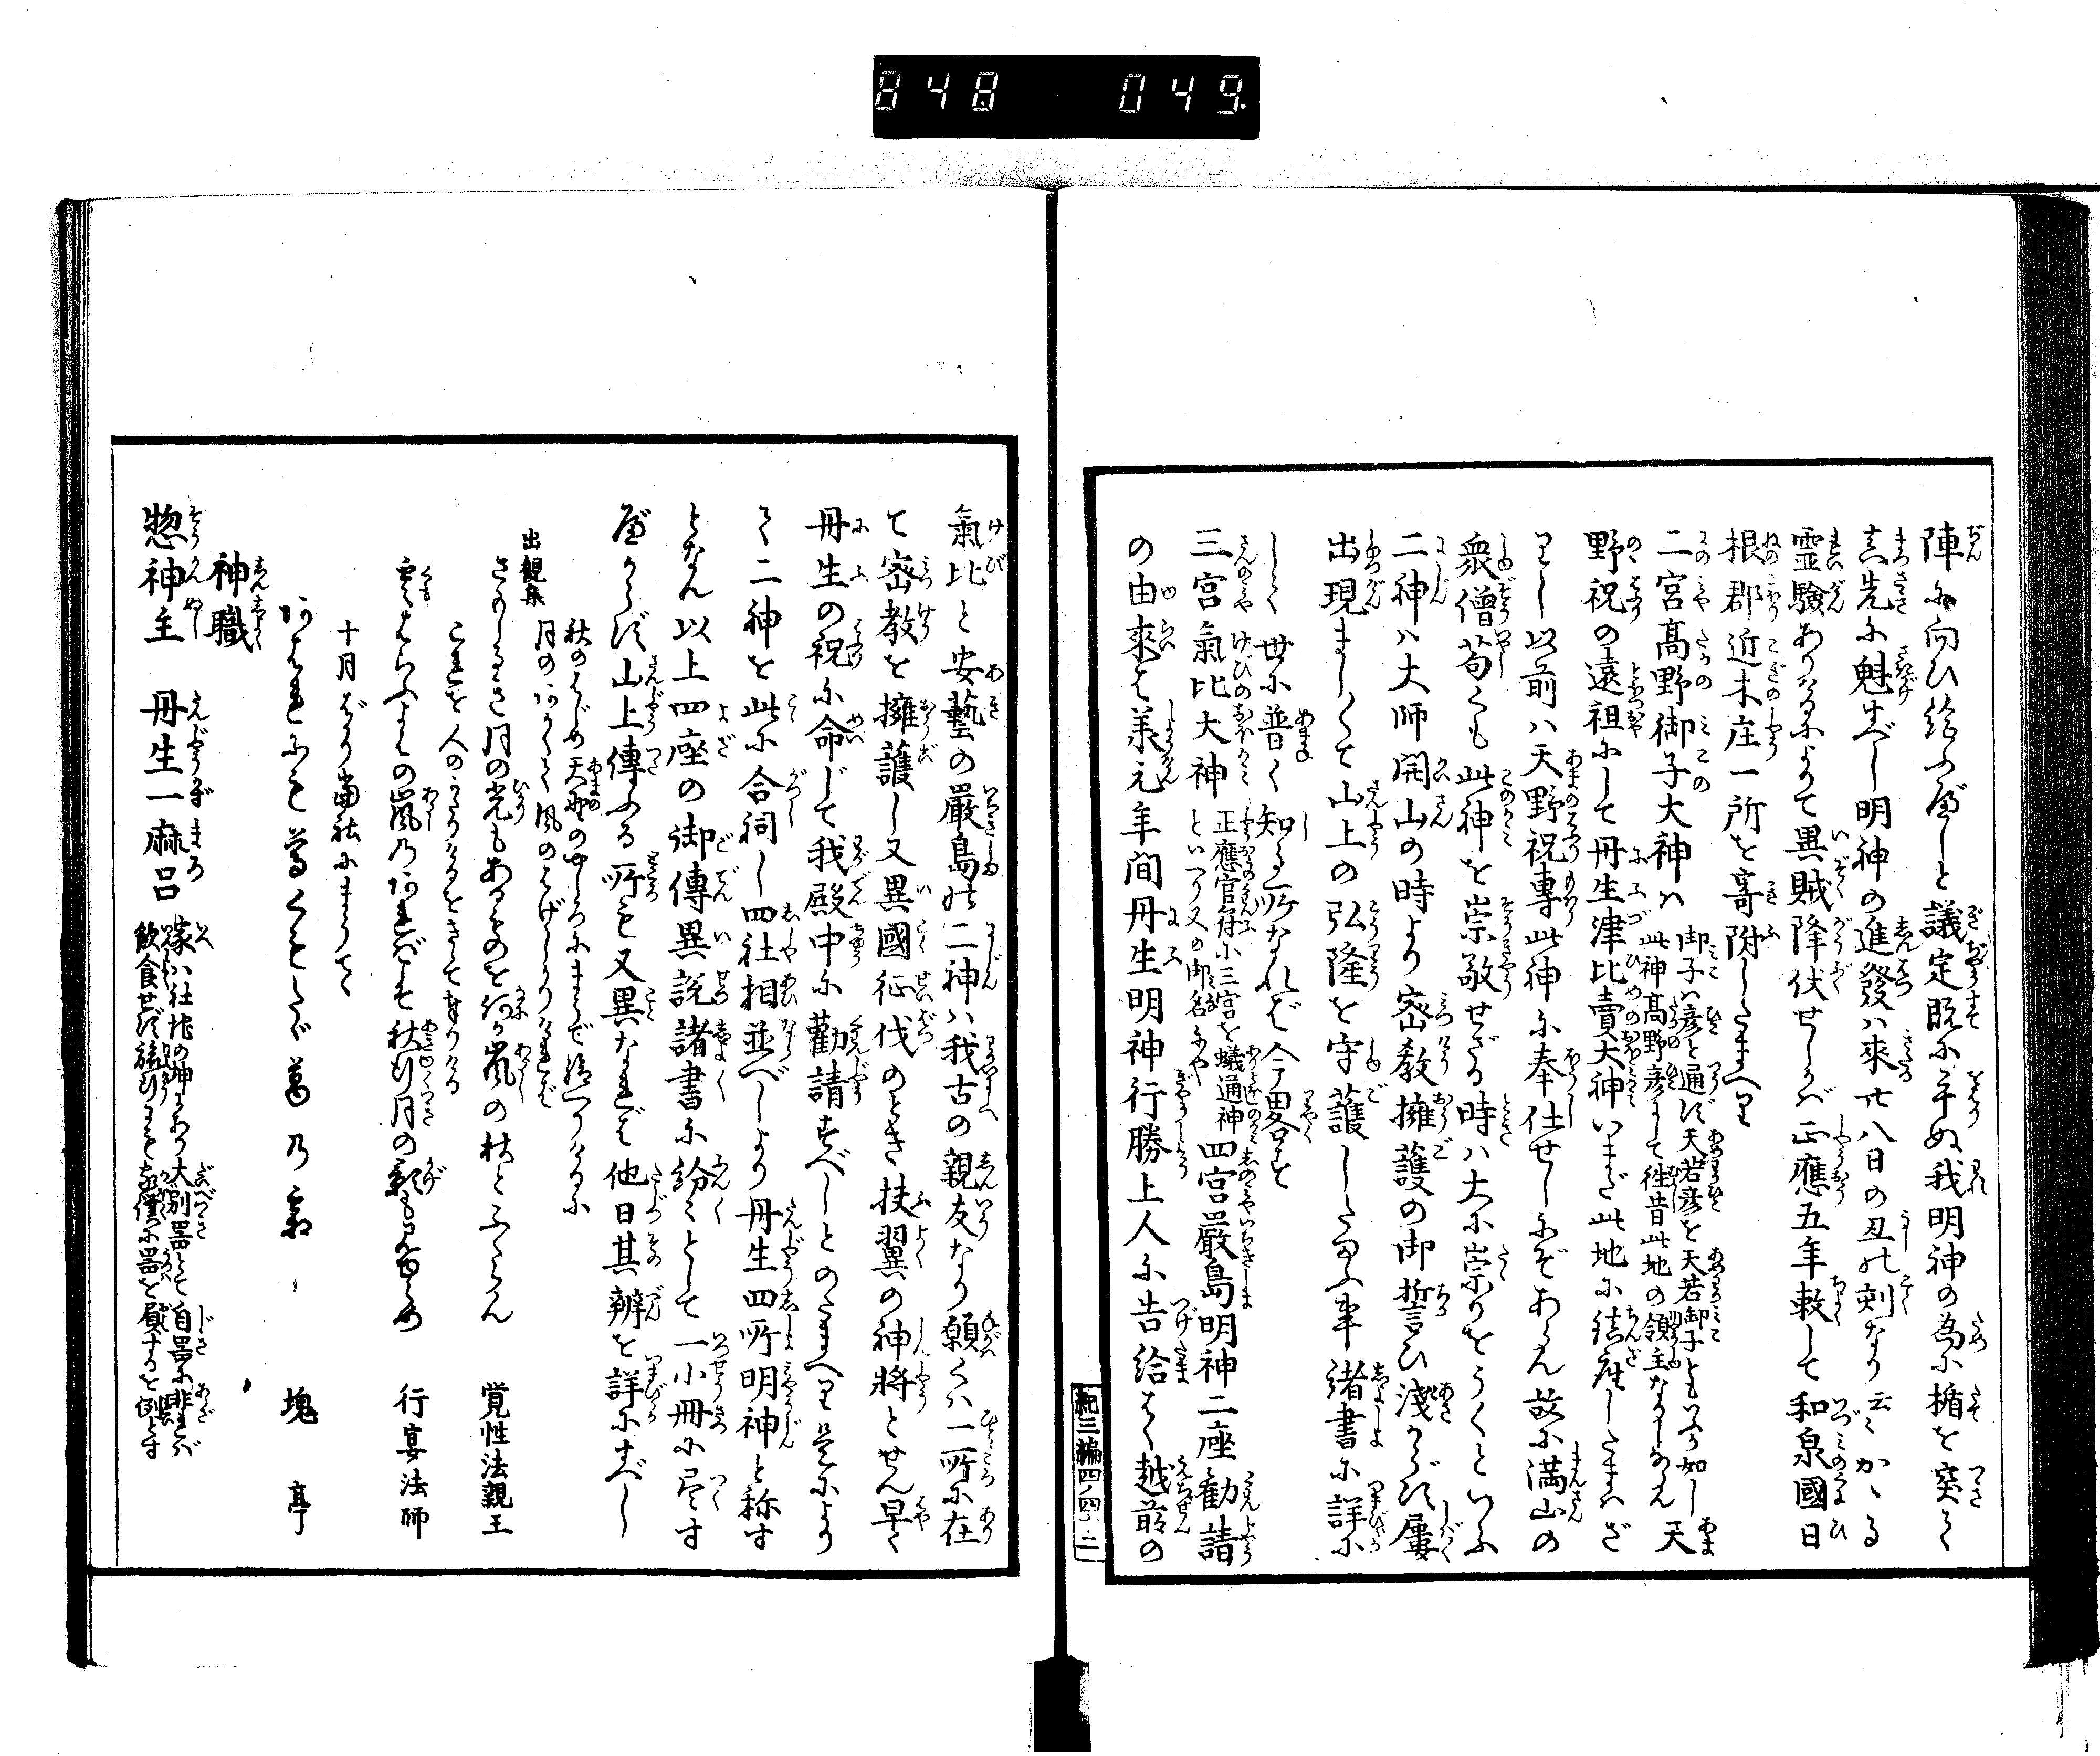 848 049
陣に向ひ給ふべしと議定既に畢ぬ我明神の為に楯を突て
真先に魁すべし明神の進發ハ來廿八日の丑の剋なり云々かゝる
霊驗ありけるによりて異賊降伏せしかバ正應五年敕して和泉國日
根郡近木庄一所を寄附したまへり
二宮髙野御子大神ハ
御子ハ彦と通ず天若彦を天若御子ともいふが如し
此神髙野彦にして徃昔此地の領主なるしなるらん
天
野祝の遠祖にして丹生津比賣大神いまだ此地に鎮座したまハざ
りし以前ハ天野祝專此神に奉仕せしにぞあらん故に満山の
衆僧苟くも此神を崇敬せざる時ハ大に崇りをうくといふ
二神ハ大師開山の時より宻教擁護の御誓ひ淺からず屢
出現まし〳〵て山上の弘隆を守護したまふ事諸書に詳に
して世に普く知る所なれば今畧す
三宮氣比大神
正應官符に三宮を蟻通神
といへり又の御名にや
四宮嚴島明神二座勸請
の由來は承元年間丹生明神行勝上人に告給はく越前の
紀三編四ノ四十二
氣比と安藝の嚴島の二神ハ我古の親友なり願くハ一所に在
て宻教を擁護し又異國征伐のとき扶翼の神將とせん早く
丹生の祝に命じて我殿中に勸請すべしとのたまへり是により
て二神を此に合祠し四社相並べしより丹生四所明神と称す
となん以上四座の御傳異說諸書に紛々として一小冊に尽す
べからず山上傳ふる所も又異なれば他日其辨を詳にすべし
出観集
秋のはじめ天野のやしろにまうで給へりけるに
月のあかく風のはげしかりければ
さやけさ月の光もあるものを何か嵐の秋とふくらん
覚性法親王
これを人のかたりけるをきゝて奉りける
雲はらふよもの嵐のあればこそ秋行月の影もみゆらめ
行宴法師
十月ばかり當社にまうでて
塊亭
神職
惣神主 丹生一麻呂
家ハ社地の坤にあり大別器とて自器に非れバ
飲食せず旅行にも家僕に器を屓するを例とす